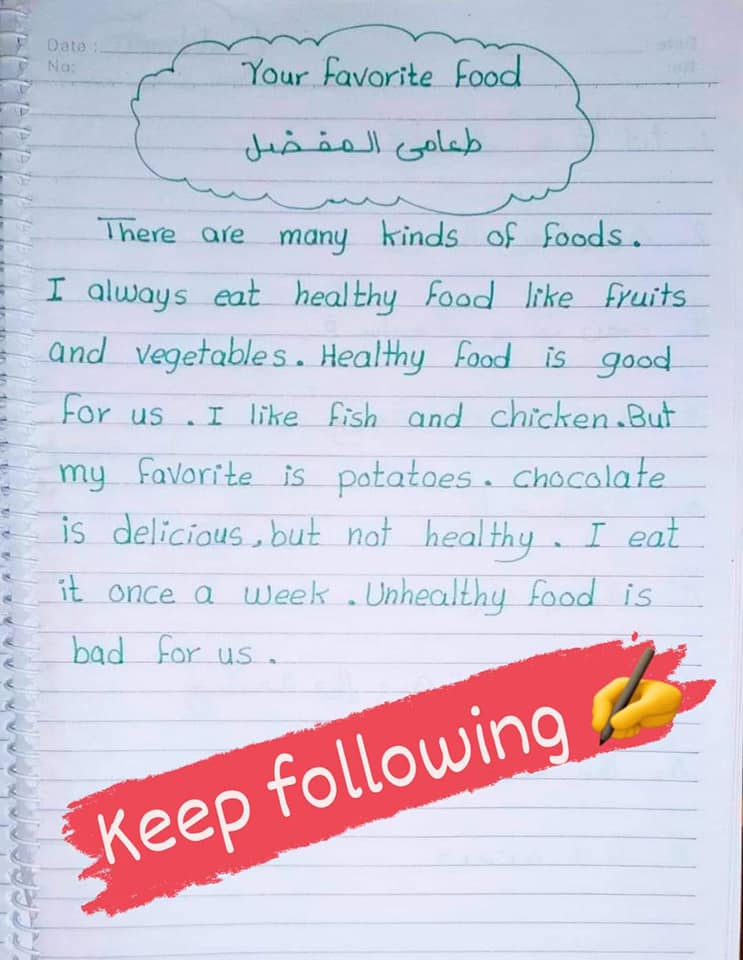 Date :
No:
Your Favorite Food
طعامى المفضل
There are many kinds of foods.
I always eat healthy food like fruits
and vegetables. Healthy food is good
for us . I like fish and chicken. But
my favorite is potatoes. chocolate
is delicious, but not healthy. I eat
it once a week. Unhealthy food is
bad for us .
Keep following